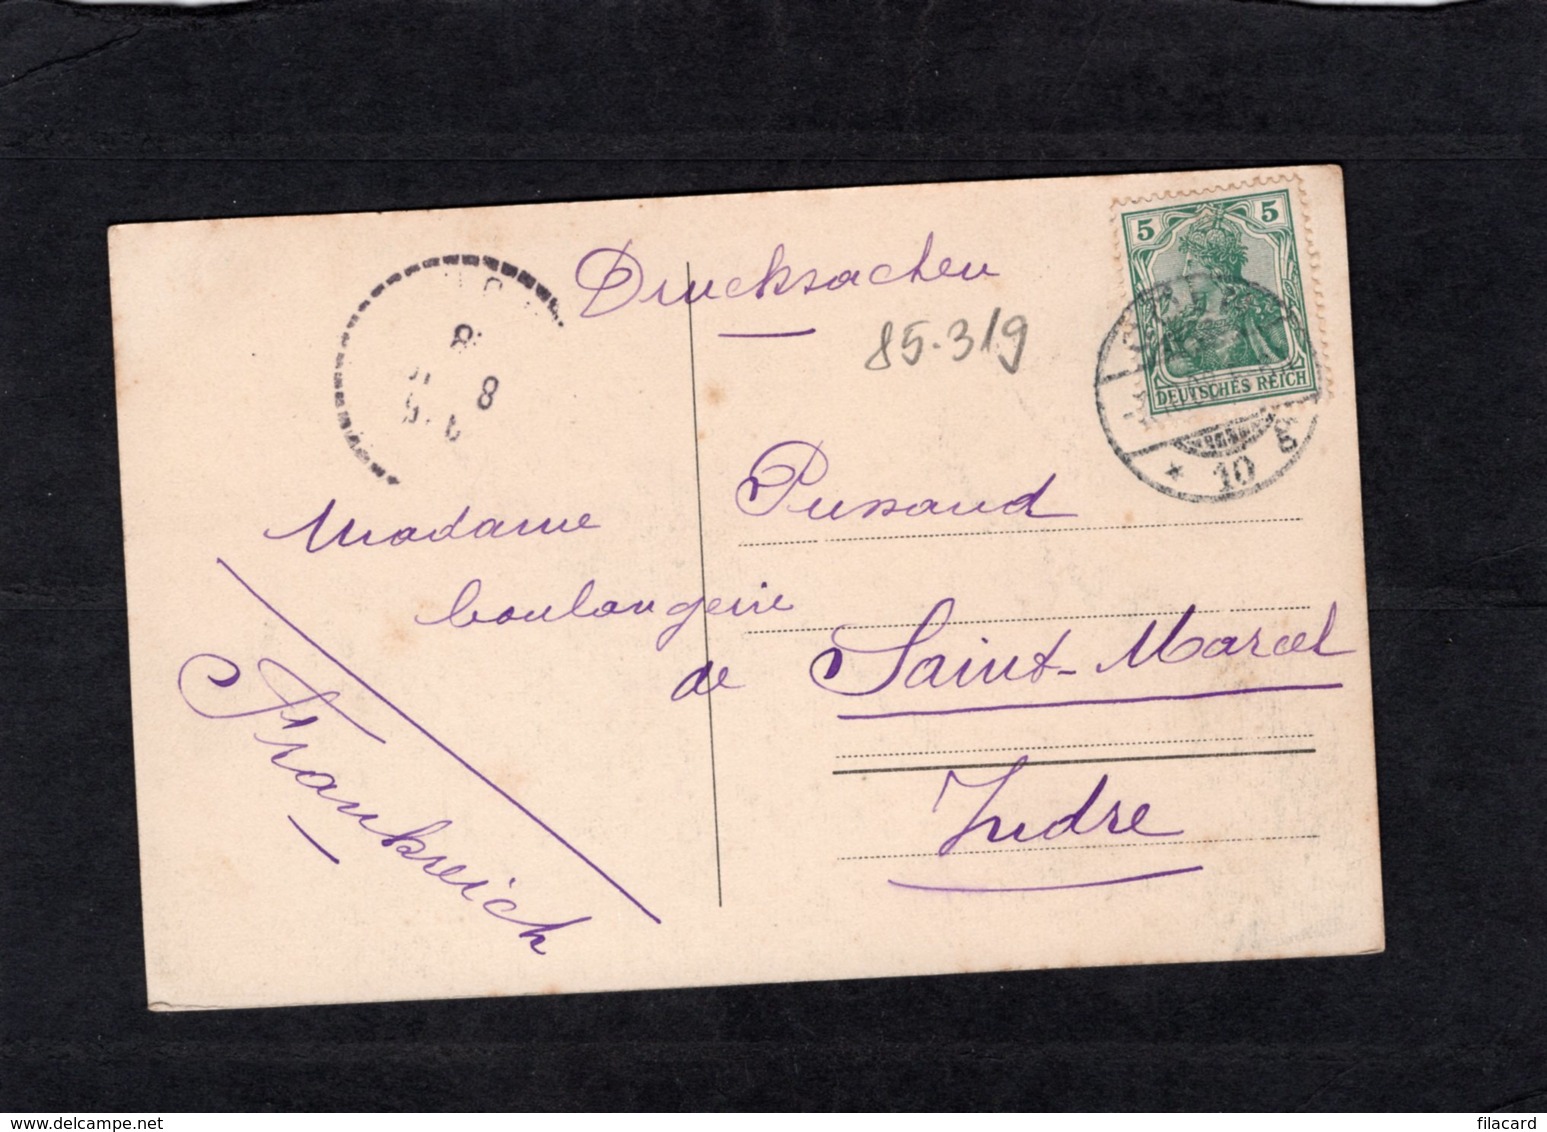 Drucksachen
85.319
5 5
DEUTSCHES REICH
* 10 g
8
8
Madame Pussaud
boulangerie
de Saint-Marcel
Indre
Frankreich
filacard